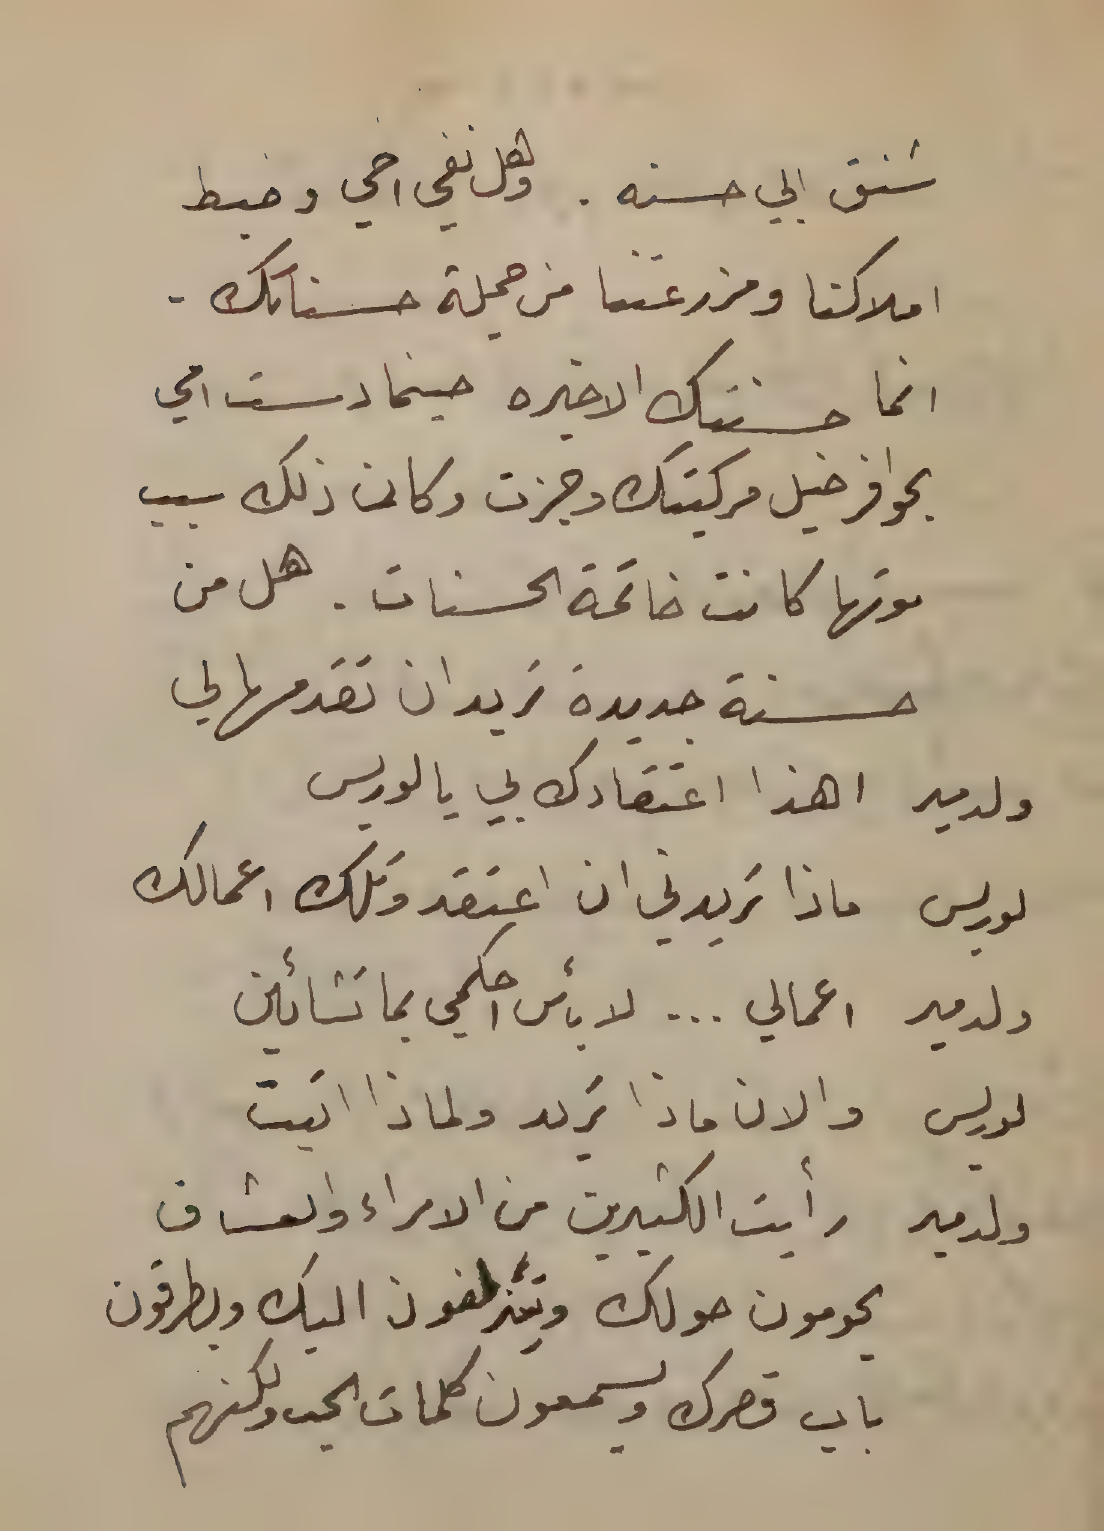 شنق ابي حسنه . وهل نفي اخي وضبط
املاكنا ومزرعتنا من جملة حسناتك -
انما حسنتك الاخيره حينما دست امي
بحوافر خيل مركبتك وجزت وكان ذلك سبب
موتها كانت خاتمة الحسنات . هل من
حسنة جديدة تريد ان تقدمها لي
ولدمير اهذا اعتقادك بي يا لوريس
لوريس ماذا تريدني ان اعتقد وتلك اعمالك
ولدمير اعمالي ... لا بأس احكمي بما تشائين
لوريس والان ماذا تريد ولماذا اتيت
ولدمير رأيت الكثيرين من الامراء والعشاق
يحومون حولك ويتزلفون اليك ويطرقون
باب قصرك ويسمعون كلمات الحب ولكنهم